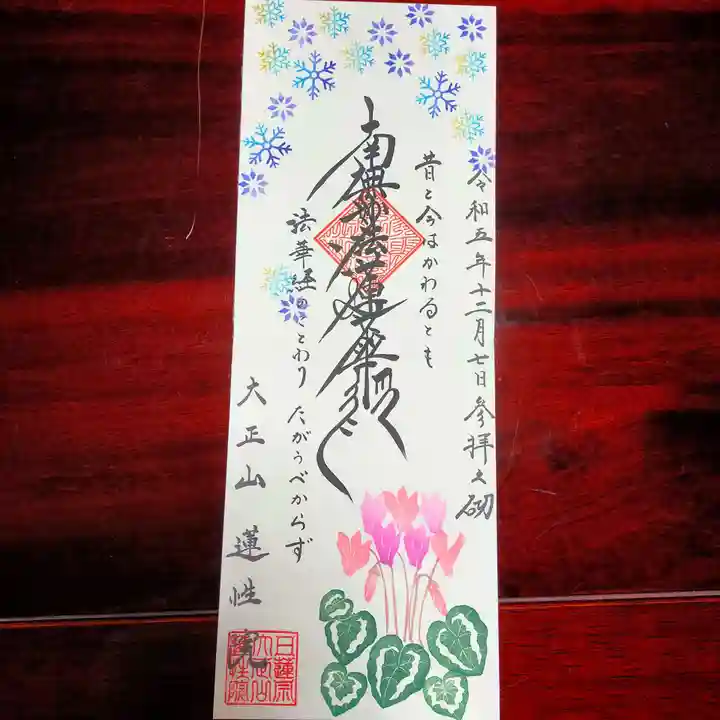 令和五年十二月七日参拝之砌
昔と今はかわるとも
南無妙法蓮華経
法華経のことわりたがうべからず
大正山 蓮性院
日蓮宗
大正山
蓮性院